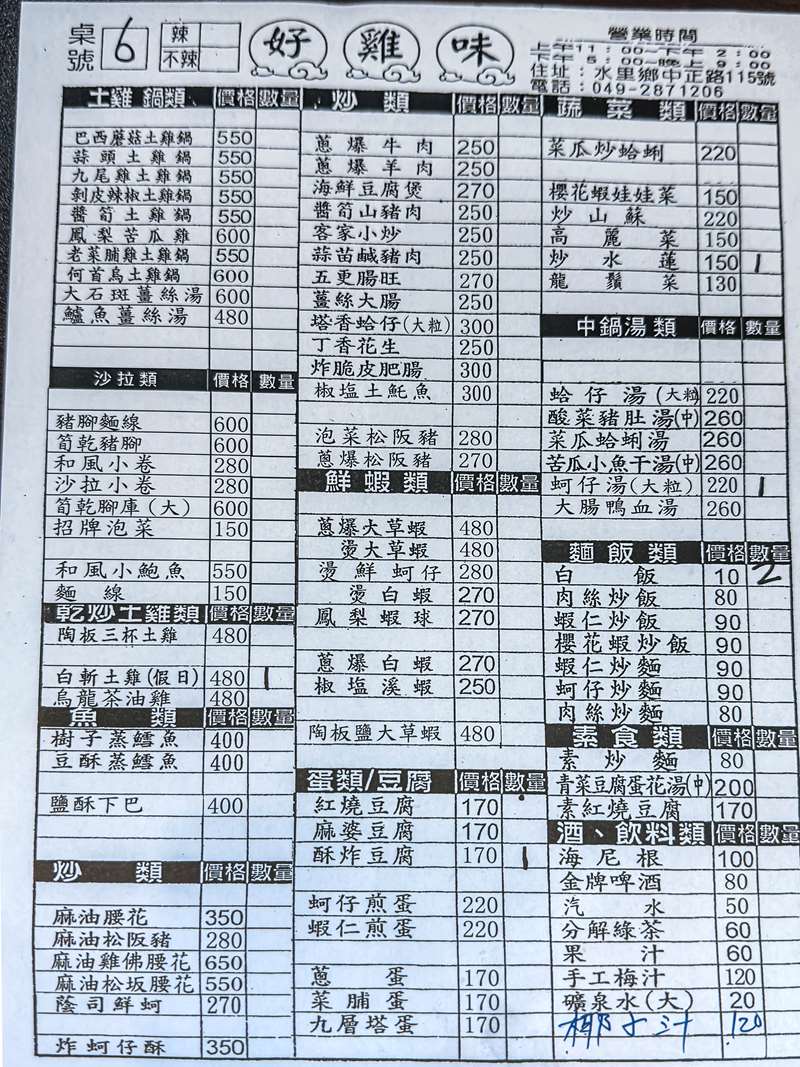 桌號 6
辣
不辣
好雞味
營業時間
上午11:00~下午 2:00
下午 5:00~晚上 9:00
住址:水里鄉中正路115號
電話:049-2871206
土雞鍋類 價格 數量
巴西蘑菇土雞鍋 550
蒜頭土雞鍋 550
九尾雞土雞鍋 550
剝皮辣椒土雞鍋 550
醬筍土雞鍋 550
鳳梨苦瓜雞 600
老菜脯雞土雞鍋 550
何首烏土雞鍋 600
大石斑薑絲湯 600
鱸魚薑絲湯 480
沙拉類 價格 數量
豬腳麵線 600
筍乾豬腳 600
和風小卷 280
沙拉小卷 280
筍乾腳庫(大) 600
招牌泡菜 150
和風小鮑魚 550
麵線 150
乾炒土雞類 價格 數量
陶板三杯土雞 480
白斬土雞(假日) 480 1
烏龍茶油雞 480
魚類 價格 數量
樹子蒸鱈魚 400
豆酥蒸鱈魚 400
鹽酥下巴 400
炒類 價格 數量
麻油腰花 350
麻油松阪豬 280
麻油雞佛腰花 650
麻油松坂腰花 550
蔭司鮮蚵 270
炸蚵仔酥 350
炒類 價格 數量
蔥爆牛肉 250
蔥爆羊肉 250
海鮮豆腐煲 270
醬筍山豬肉 250
客家小炒 250
蒜苗鹹豬肉 250
五更腸旺 270
薑絲大腸 250
塔香蛤仔(大粒) 300
丁香花生 250
炸脆皮肥腸 300
椒塩土魠魚 300
泡菜松阪豬 280
蔥爆松阪豬 270
鮮蝦類 價格 數量
蔥爆大草蝦 480
燙大草蝦 480
燙鮮蚵仔 280
燙白蝦 270
鳳梨蝦球 270
蔥爆白蝦 270
椒塩溪蝦 250
陶板鹽大草蝦 480
蛋類/豆腐 價格 數量
紅燒豆腐 170
麻婆豆腐 170
酥炸豆腐 170 1
蚵仔煎蛋 220
蝦仁煎蛋 220
蔥蛋 170
菜脯蛋 170
九層塔蛋 170
蔬菜類 價格 數量
菜瓜炒蛤蜊 220
櫻花蝦娃娃菜 150
炒山蘇 220
高麗菜 150
炒水蓮 150 1
龍鬚菜 130
中鍋湯類 價格 數量
蛤仔湯(大粒) 220
酸菜豬肚湯(中) 260
菜瓜蛤蜊湯 260
苦瓜小魚干湯(中) 260
蚵仔湯(大粒) 220 1
大腸鴨血湯 260
麵飯類 價格 數量
白飯 10 2
肉絲炒飯 80
蝦仁炒飯 90
櫻花蝦炒飯 90
蝦仁炒麵 90
蚵仔炒麵 90
肉絲炒麵 80
素食類 價格 數量
素炒麵 80
青菜豆腐蛋花湯(中) 200
素紅燒豆腐 170
酒、飲料類 價格 數量
海尼根 100
金牌啤酒 80
汽水 50
分解綠茶 60
果汁 60
手工梅汁 120
礦泉水(大) 20
椰子汁 120